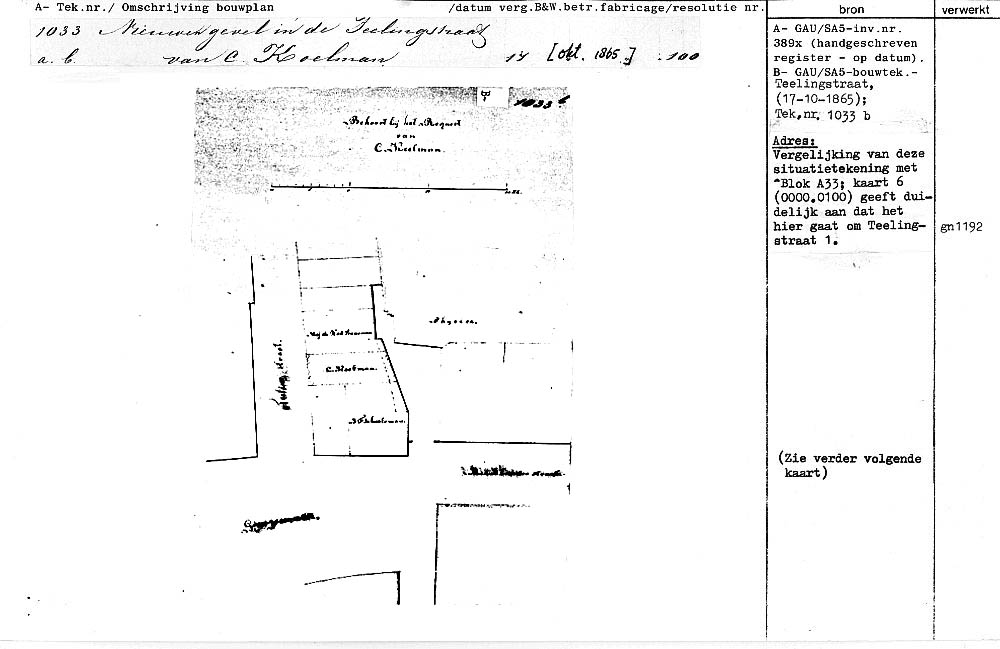 A- Tek.nr./ Omschrijving bouwplan /datum verg.B&W.betr.fabricage/resolutie nr. bron verwerkt
1033 Nieuwen gevel in de Teelingstraat
a. b. van C. Koelman 17 [okt. 1865.] 100
1033 b
Behoort bij het Request
van
C. Koelman.
C. Koelman.
A- GAU/SA5-inv.nr.
389x (handgeschreven
register - op datum).
B- GAU/SA5-bouwtek.-
Teelingstraat,
(17-10-1865);
Tek.nr. 1033 b
Adres:
Vergelijking van deze
situatietekening met
"Blok A33; kaart 6
(0000.0100) geeft dui-
delijk aan dat het
hier gaat om Teeling-
straat 1.
gn1192
(Zie verder volgende
kaart)